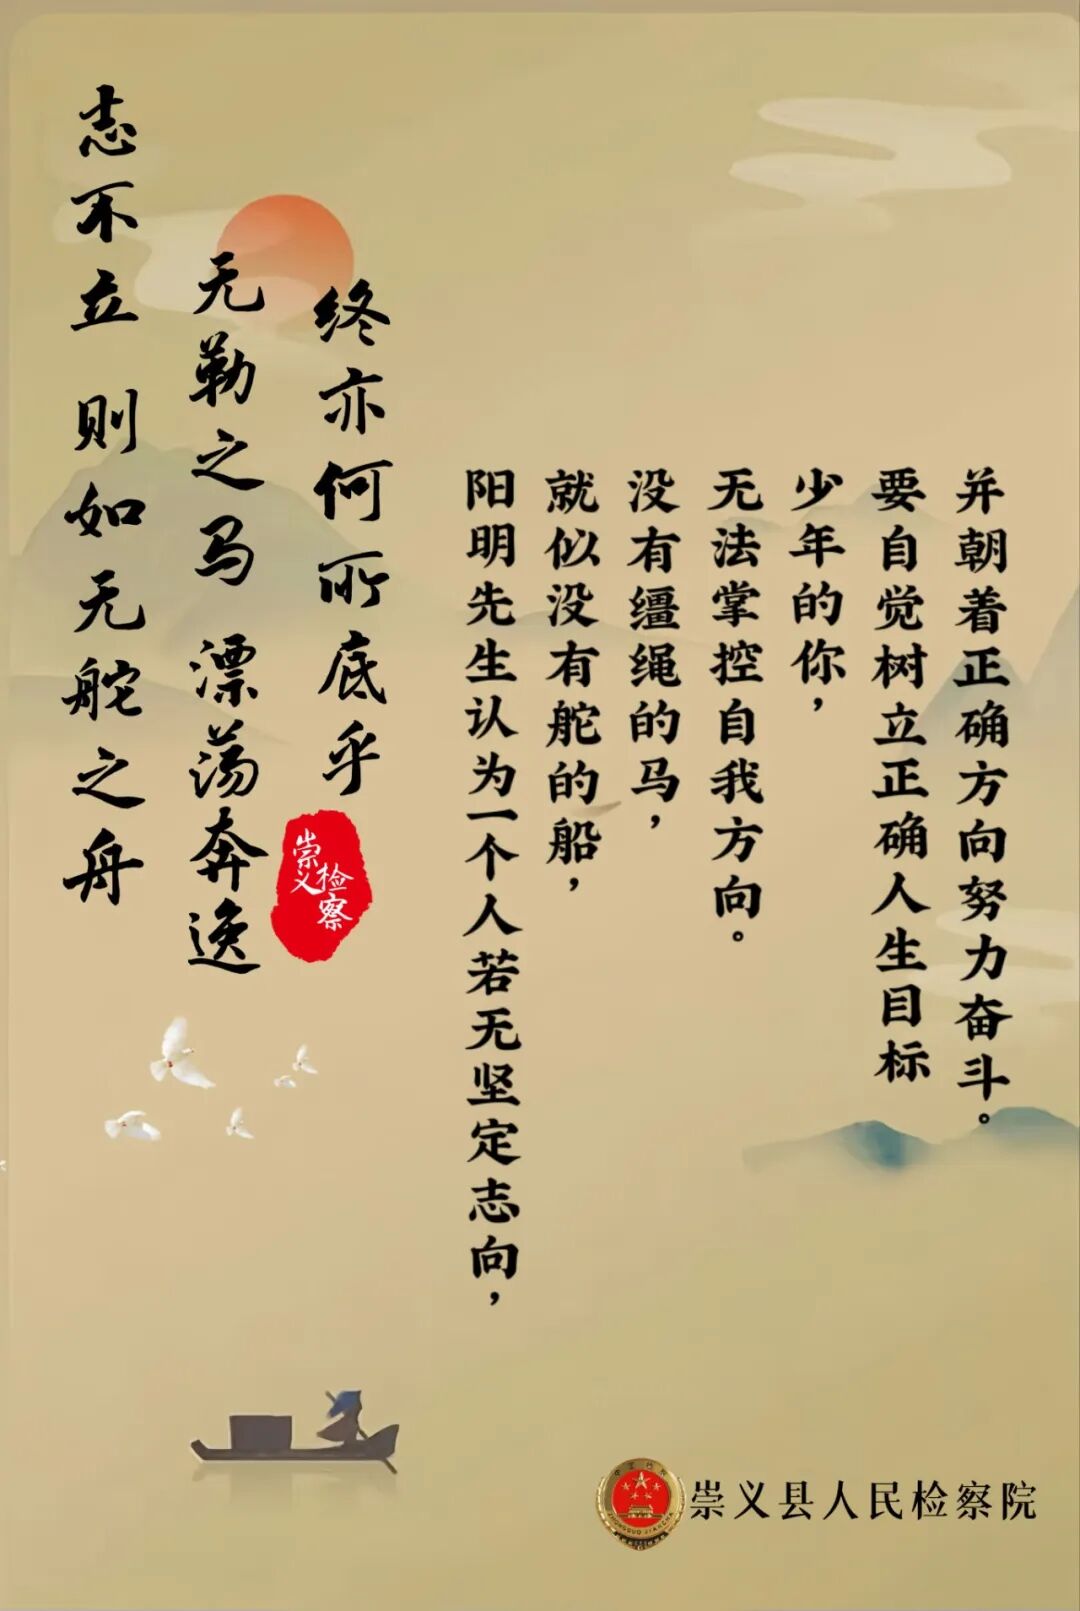 志不立 则如无舵之舟
无勒之马 漂荡奔逸
终亦何所底乎
崇义
检察
阳明先生认为一个人若无坚定志向，
就似没有舵的船，
没有缰绳的马，
无法掌控自我方向。
少年的你，
要自觉树立正确人生目标
并朝着正确方向努力奋斗。
崇义县人民检察院